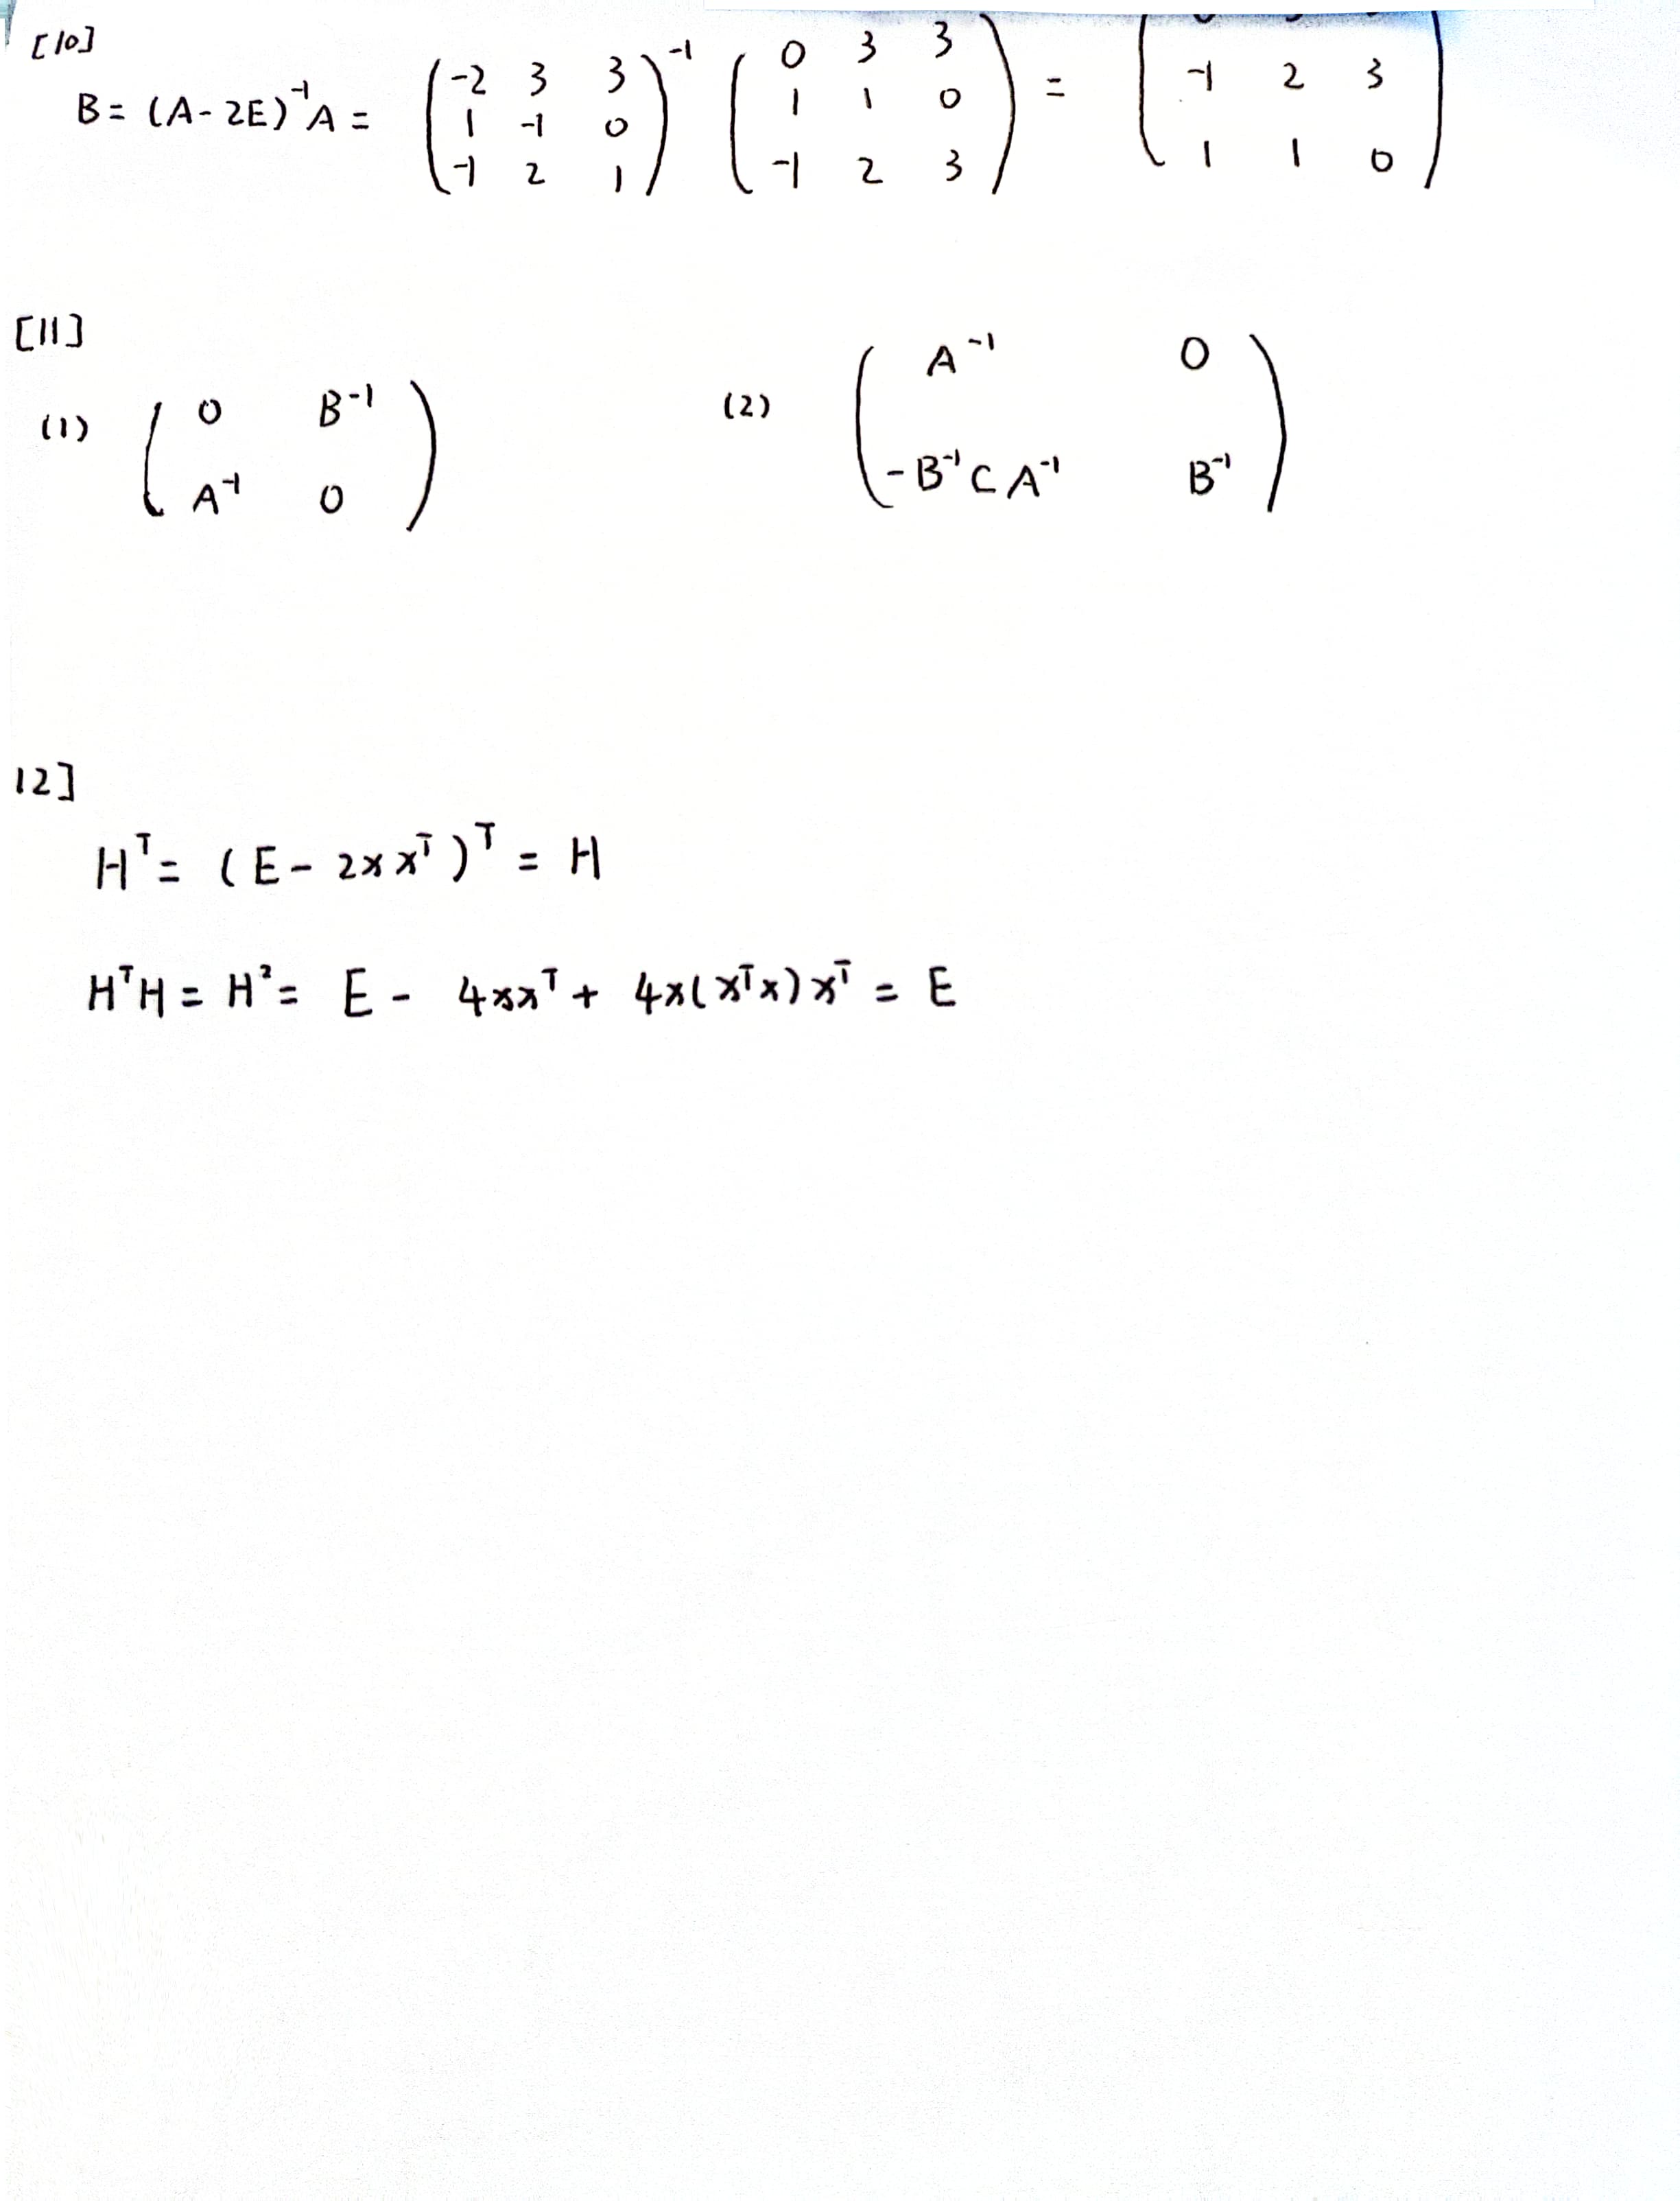 [10]
B = (A - 2E)⁻¹A = ( -2 3 3 ; 1 -1 0 ; -1 2 1 )⁻¹ ( 0 3 3 ; 1 1 0 ; -1 2 3 ) = ( -1 2 3 ; 1 1 0 )
[11]
(1) ( 0 B⁻¹ ; A⁻¹ 0 ) (2) ( A⁻¹ 0 ; -B⁻¹CA⁻¹ B⁻¹ )
12]
Hᵀ = (E - 2xxᵀ)ᵀ = H
HᵀH = H² = E - 4xxᵀ + 4x(xᵀx)xᵀ = E